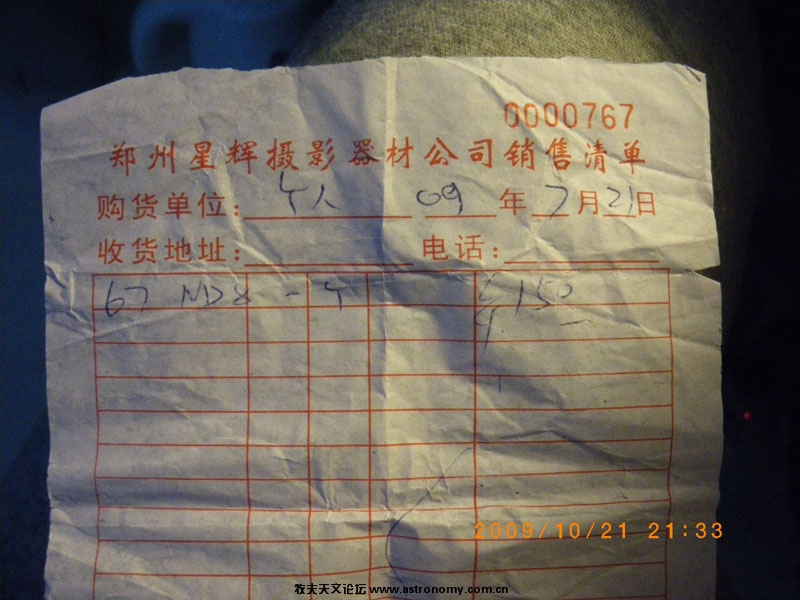 0000767
郑州星辉摄影器材公司销售清单
购货单位: 个人 09 年 7 月 21 日
收货地址: 电话:
67 ND8 一个 ¥150
2009/10/21 21:33
牧夫天文论坛 www.astronomy.com.cn